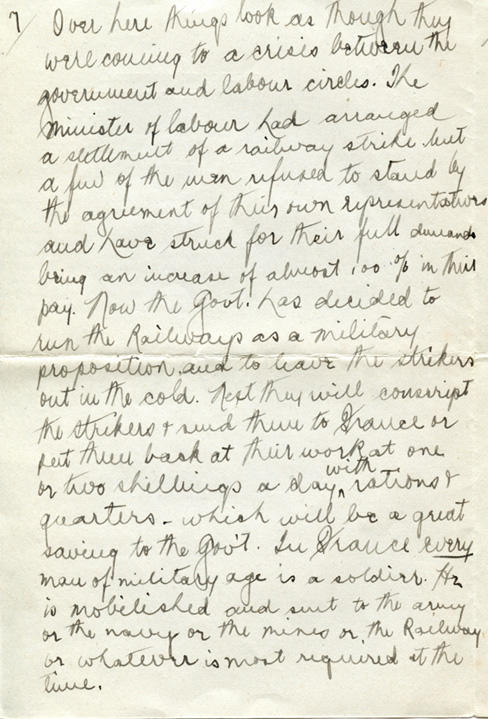 7/ Over here things look as though they
were coming to a crisis between the
government and labour circles. The
Minister of labour had arranged
a settlement of a railway strike but
a few of the men refused to stand by
the agreement of their own representatives
and have struck for their full demands
being an increase of almost 100 % in their
pay. Now the Govt. has decided to
run the Railways as a military
proposition, and to leave the strikers
out in the cold. Next they will conscript
the strikers & send them to France or
put them back at their work at one
or two shillings a day, with rations &
quarters - which will be a great
saving to the Gov't. In France every
man of military age is a soldier. He
is mobilished and sent to the army
or the navy or the mines or the Railway
or whatever is most required at the
time.